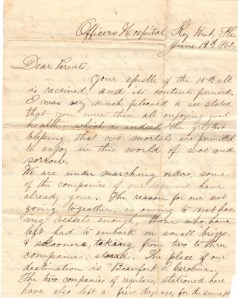 Officers Hospital, Key West, Fla
June 18th, 186
Dear Parents
Your epistle of the 10th ult
is received, and its content perused.
I was very much pleased to see stated
that you were then all enjoying good
health, which is indeed the greatest
blessing that our mortals are permitted
to enjoy in this world of woe and
sorrow.
We are under marching orders, some
of the companies of our regiment have
already gone. The reason for our not
going together is owing to not hav
ing vessels enough, those who have
left had to embark in small brigs,
& schooners, taking from two to three
companies, each. The place of our
destination is "Beaufort S. Carolina.
The two companies of regulars stationed here
have also left a few days ago for the same